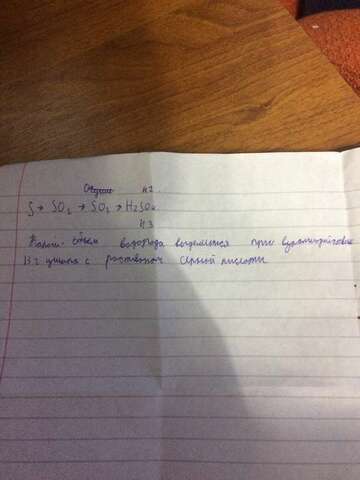 №2
S → SO2 → SO3 → H2SO4
№3
Какой объём водорода выделится при взаимодействие
13 г цинка с раствором серной кислоты